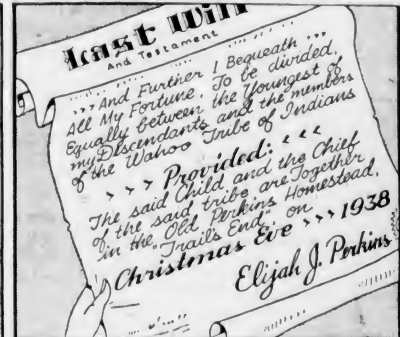 Last Will
And Testament
,,, And Further I Bequeath ,,,
All My Fortune, To be divided,
Equally between the Youngest of
my Descendants and the members
of the Wahoo Tribe of Indians
> > > Provided: < < <
The said Child and the Chief
of the said tribe are Together
in the, Old Perkins Homestead,
"Trail's End", on
Christmas Eve >>> 1938
Elijah J. Perkins